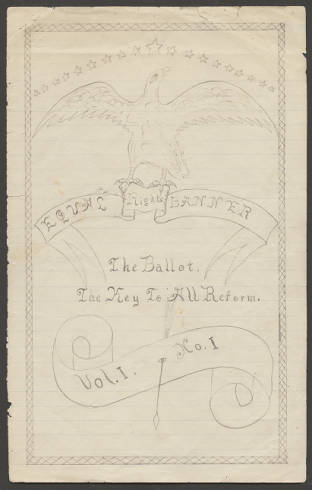 EQUAL Right BANNER
The Ballot,
The Key To All Reform.
Vol. I. No. I